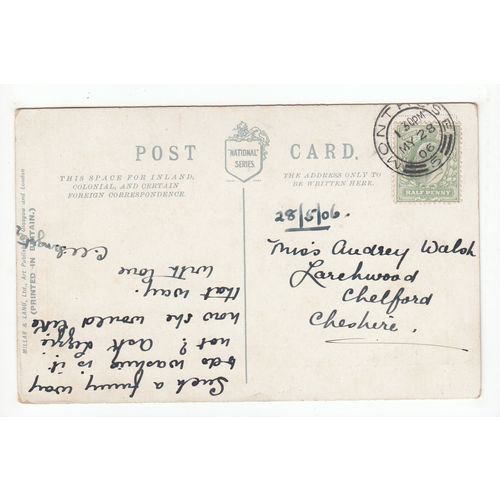 POST CARD.
"NATIONAL" SERIES.
THIS SPACE FOR INLAND,
COLONIAL, AND CERTAIN
FOREIGN CORRESPONDENCE.
THE ADDRESS ONLY TO
BE WRITTEN HERE.
MONTROSE
1 30PM
MY 28
06
HALF PENNY
28/5/06.
Miss Audrey Walsh
Larchwood
Chelford
Cheshire.
Such a funny way
to do washing is it
not? ask Lizzie
how she would like
that way.
with love
MILLAR & LANG, Ltd., Art Publishers, Glasgow and London
(PRINTED IN BRITAIN.)